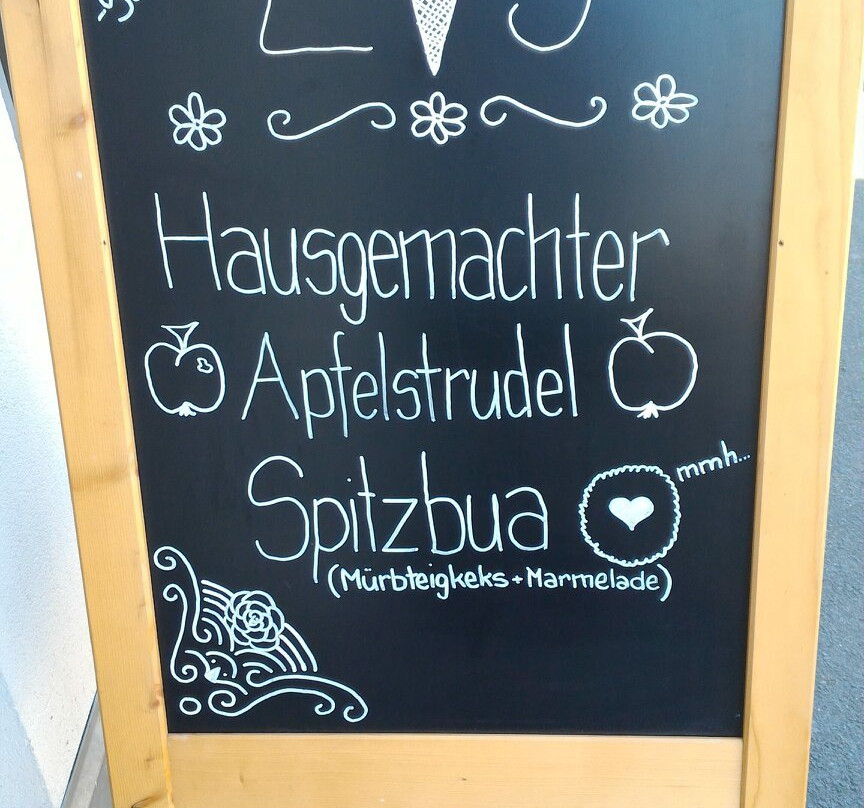 Hausgemachter
Apfelstrudel
Spitzbua
mmh...
(Mürbteigkeks + Marmelade)